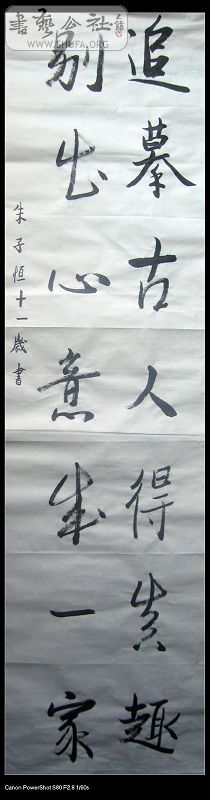 追摹古人得真趣
别出心意成一家
朱子恒十一歲書
書藝公社
WWW.SHUFA.ORG
Canon PowerShot S80 F2.8 1/60s